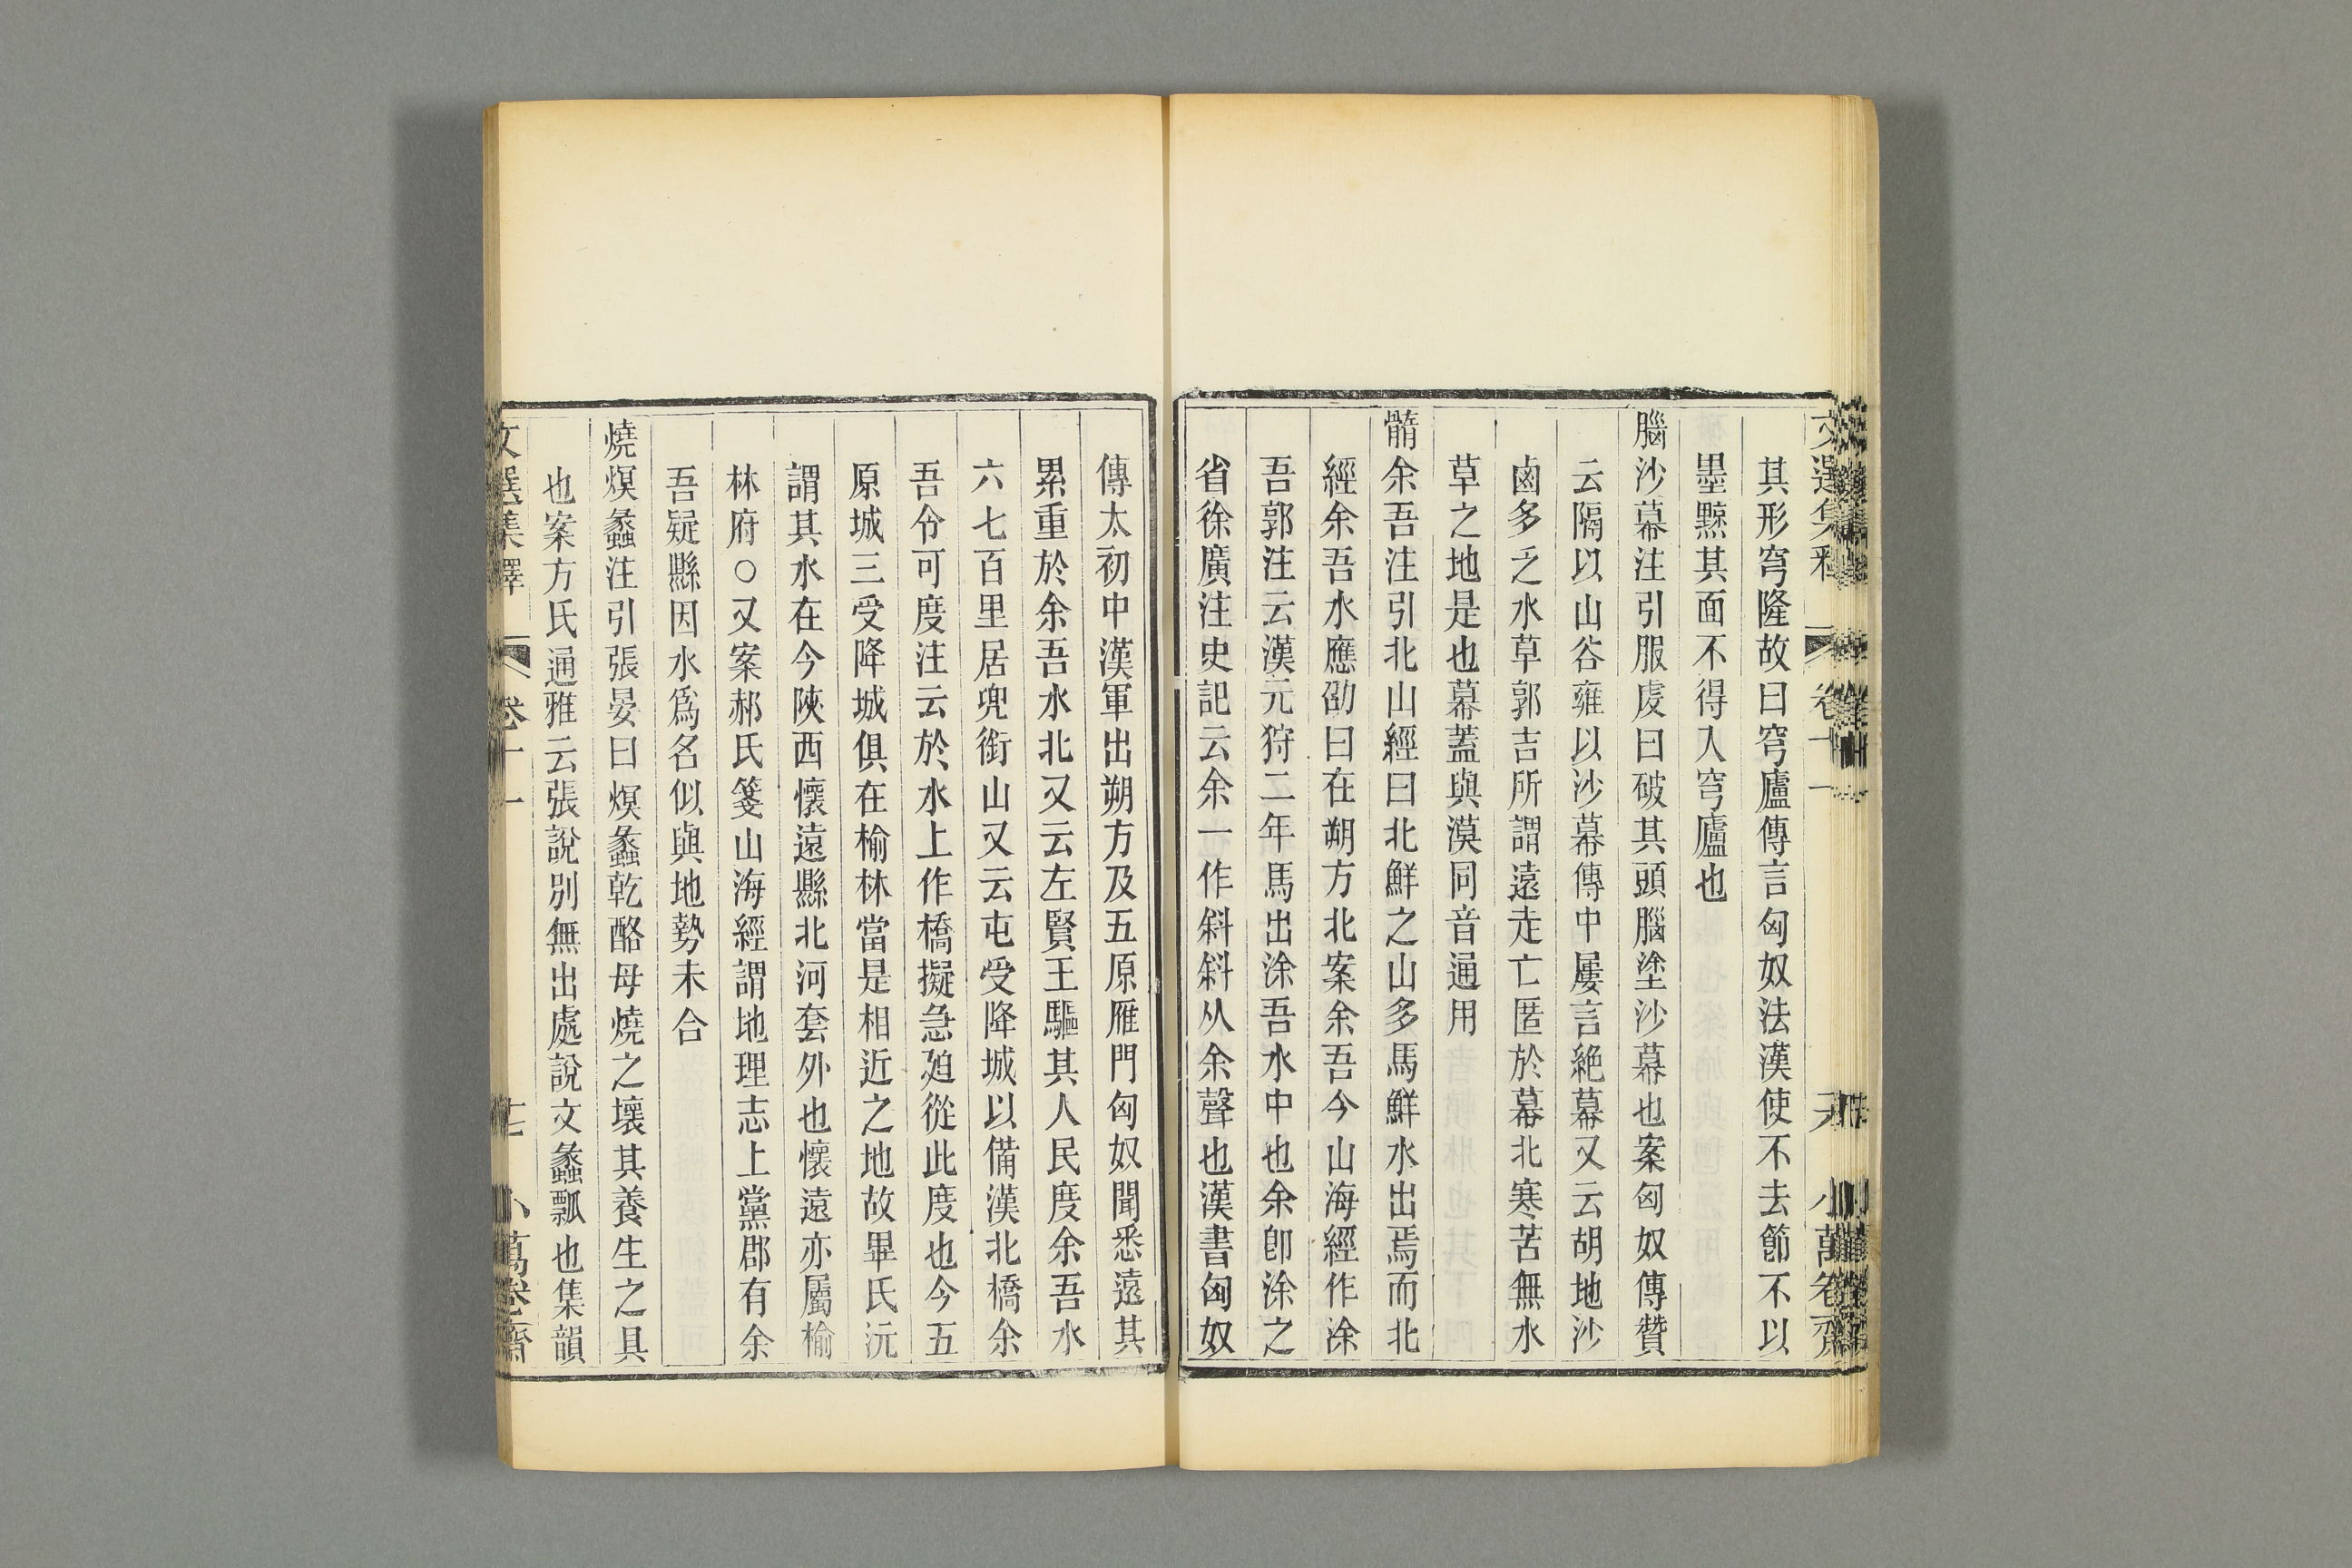 其形穹隆故曰穹廬傳言匈奴法漢使不去節不以
墨黥其面不得入穹廬也
腦沙幕注引服虔曰破其頭腦塗沙幕也案匈奴傳贊
云隔以山谷雍以沙幕傳中屢言絶幕又云胡地沙
鹵多乏水草郭吉所謂遠走亡匿於幕北寒苦無水
草之地是也幕蓋與漠同音通用
髓余吾注引北山經曰北鮮之山多馬鮮水出焉而北
經余吾水應劭曰在朔方北案余吾今山海經作涂
吾郭注云漢元狩二年馬出涂吾水中也余卽涂之
省徐廣注史記云余一作斜斜从余聲也漢書匈奴
傳太初中漢軍出朔方及五原雁門匈奴聞悉遠其
累重於余吾水北又云左賢王驅其人民度余吾水
六七百里居兜銜山又云屯受降城以備漢北橋余
吾令可度注云於水上作橋擬急廹從此度也今五
原城三受降城俱在榆林當是相近之地故畢氏沅
謂其水在今陝西懷遠縣北河套外也懷遠亦屬榆
林府○又案郝氏箋山海經謂地理志上黨郡有余
吾疑縣因水爲名似與地勢未合
燒熐蠡注引張晏曰熐蠡乾酪母燒之壞其養生之具
也案方氏通雅云張說別無出處說文蠡瓢也集韻
文選集釋 卷十一 十七 小萬卷齋